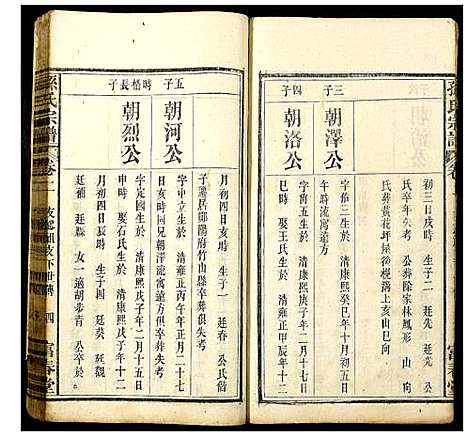 初三日戌時 生子二 廷先 廷
氏卒年失考 公葬陰家林鳳形 山向
氏葬黃花坪屋後梘溝上亥山巳向
三子
朝澤公
字飴三生於 清康熙癸巳年十月初五日
午時流寓遠方
四子
朝洛公
字 生於 清雍正甲辰年十三
巳時 娶王氏生歿葬俱失考
月初四日亥時 生子一 廷春 公氏偕
子遷居鄖陽府竹山縣卒葬俱失考
五子
朝河公
字中立生於 清雍正丙午年正月二十七
亥時同兄朝洋流寓遠方俱卒葬失考
時楷長子
朝烈公
字定國生於 清康熙庚子年二月十五日
申時 娶石氏生於 清康熙庚子年十二
月初四日辰時 生子四 廷葵 廷觀
廷補 廷縣 女一適胡步青 公卒於
孫氏宗譜 卷一 四 富春堂
孫氏宗譜 卷 富春堂